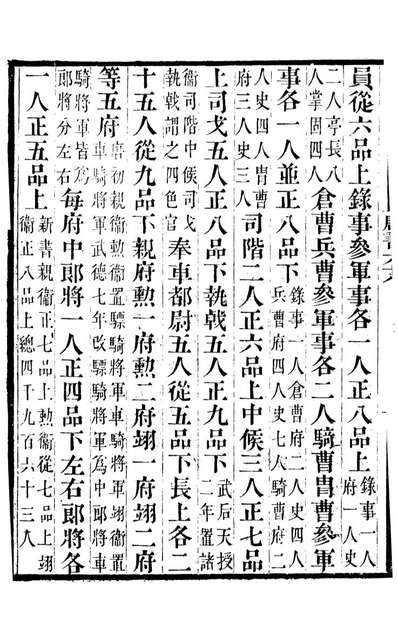 員從六品上錄事參軍事各一人正八品上
錄事一人
府一人史
二人亭長八
人掌固四人
倉曹兵曹參軍事各二人騎曹冑曹參軍
事各一人並正八品下
錄事一人倉曹府二人史四人
兵曹府四人史七人騎曹府二
人史四人冑曹
府三人史三人
司階二人正六品上中候三人正七品
上司戈五人正八品下執戟五人正九品下
武后天授
二年置諸
衞司階中候司戈
執戟謂之四色官
奉車都尉五人從五品下長上各二
十五人從九品下親府勳一府勳二府翊一府翊二府
等五府
唐初親衞置驃騎將軍車騎將軍翊衞置
車騎將軍武德七年改驃騎將軍為中郎將車
騎將軍皆為
郎將分左右
每府中郎將一人正四品下左右郎將各
一人正五品上
新書親衞正七品上勳衞從七品上翊
衞正八品上總四千九百六十三人